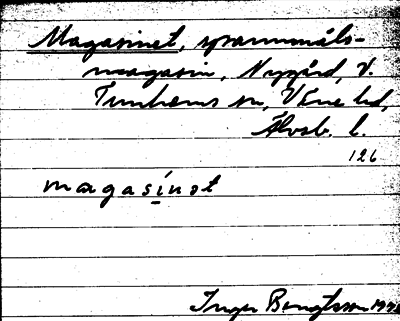 Magasinet, spannmåls-
magasin, Nygård, V.
Tunhems sn, Väne hd,
Älvsb. l.
126
magasinet
Inger Bengtsson